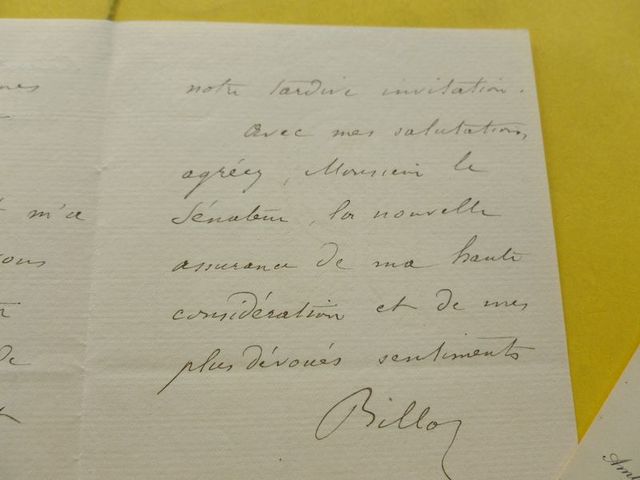 notre tardive invitation.
Avec mes salutations,
agréez, Monsieur le
Sénateur, la nouvelle
assurance de ma haute
considération et de mes
plus dévoués sentiments
Billoz
m'a
de